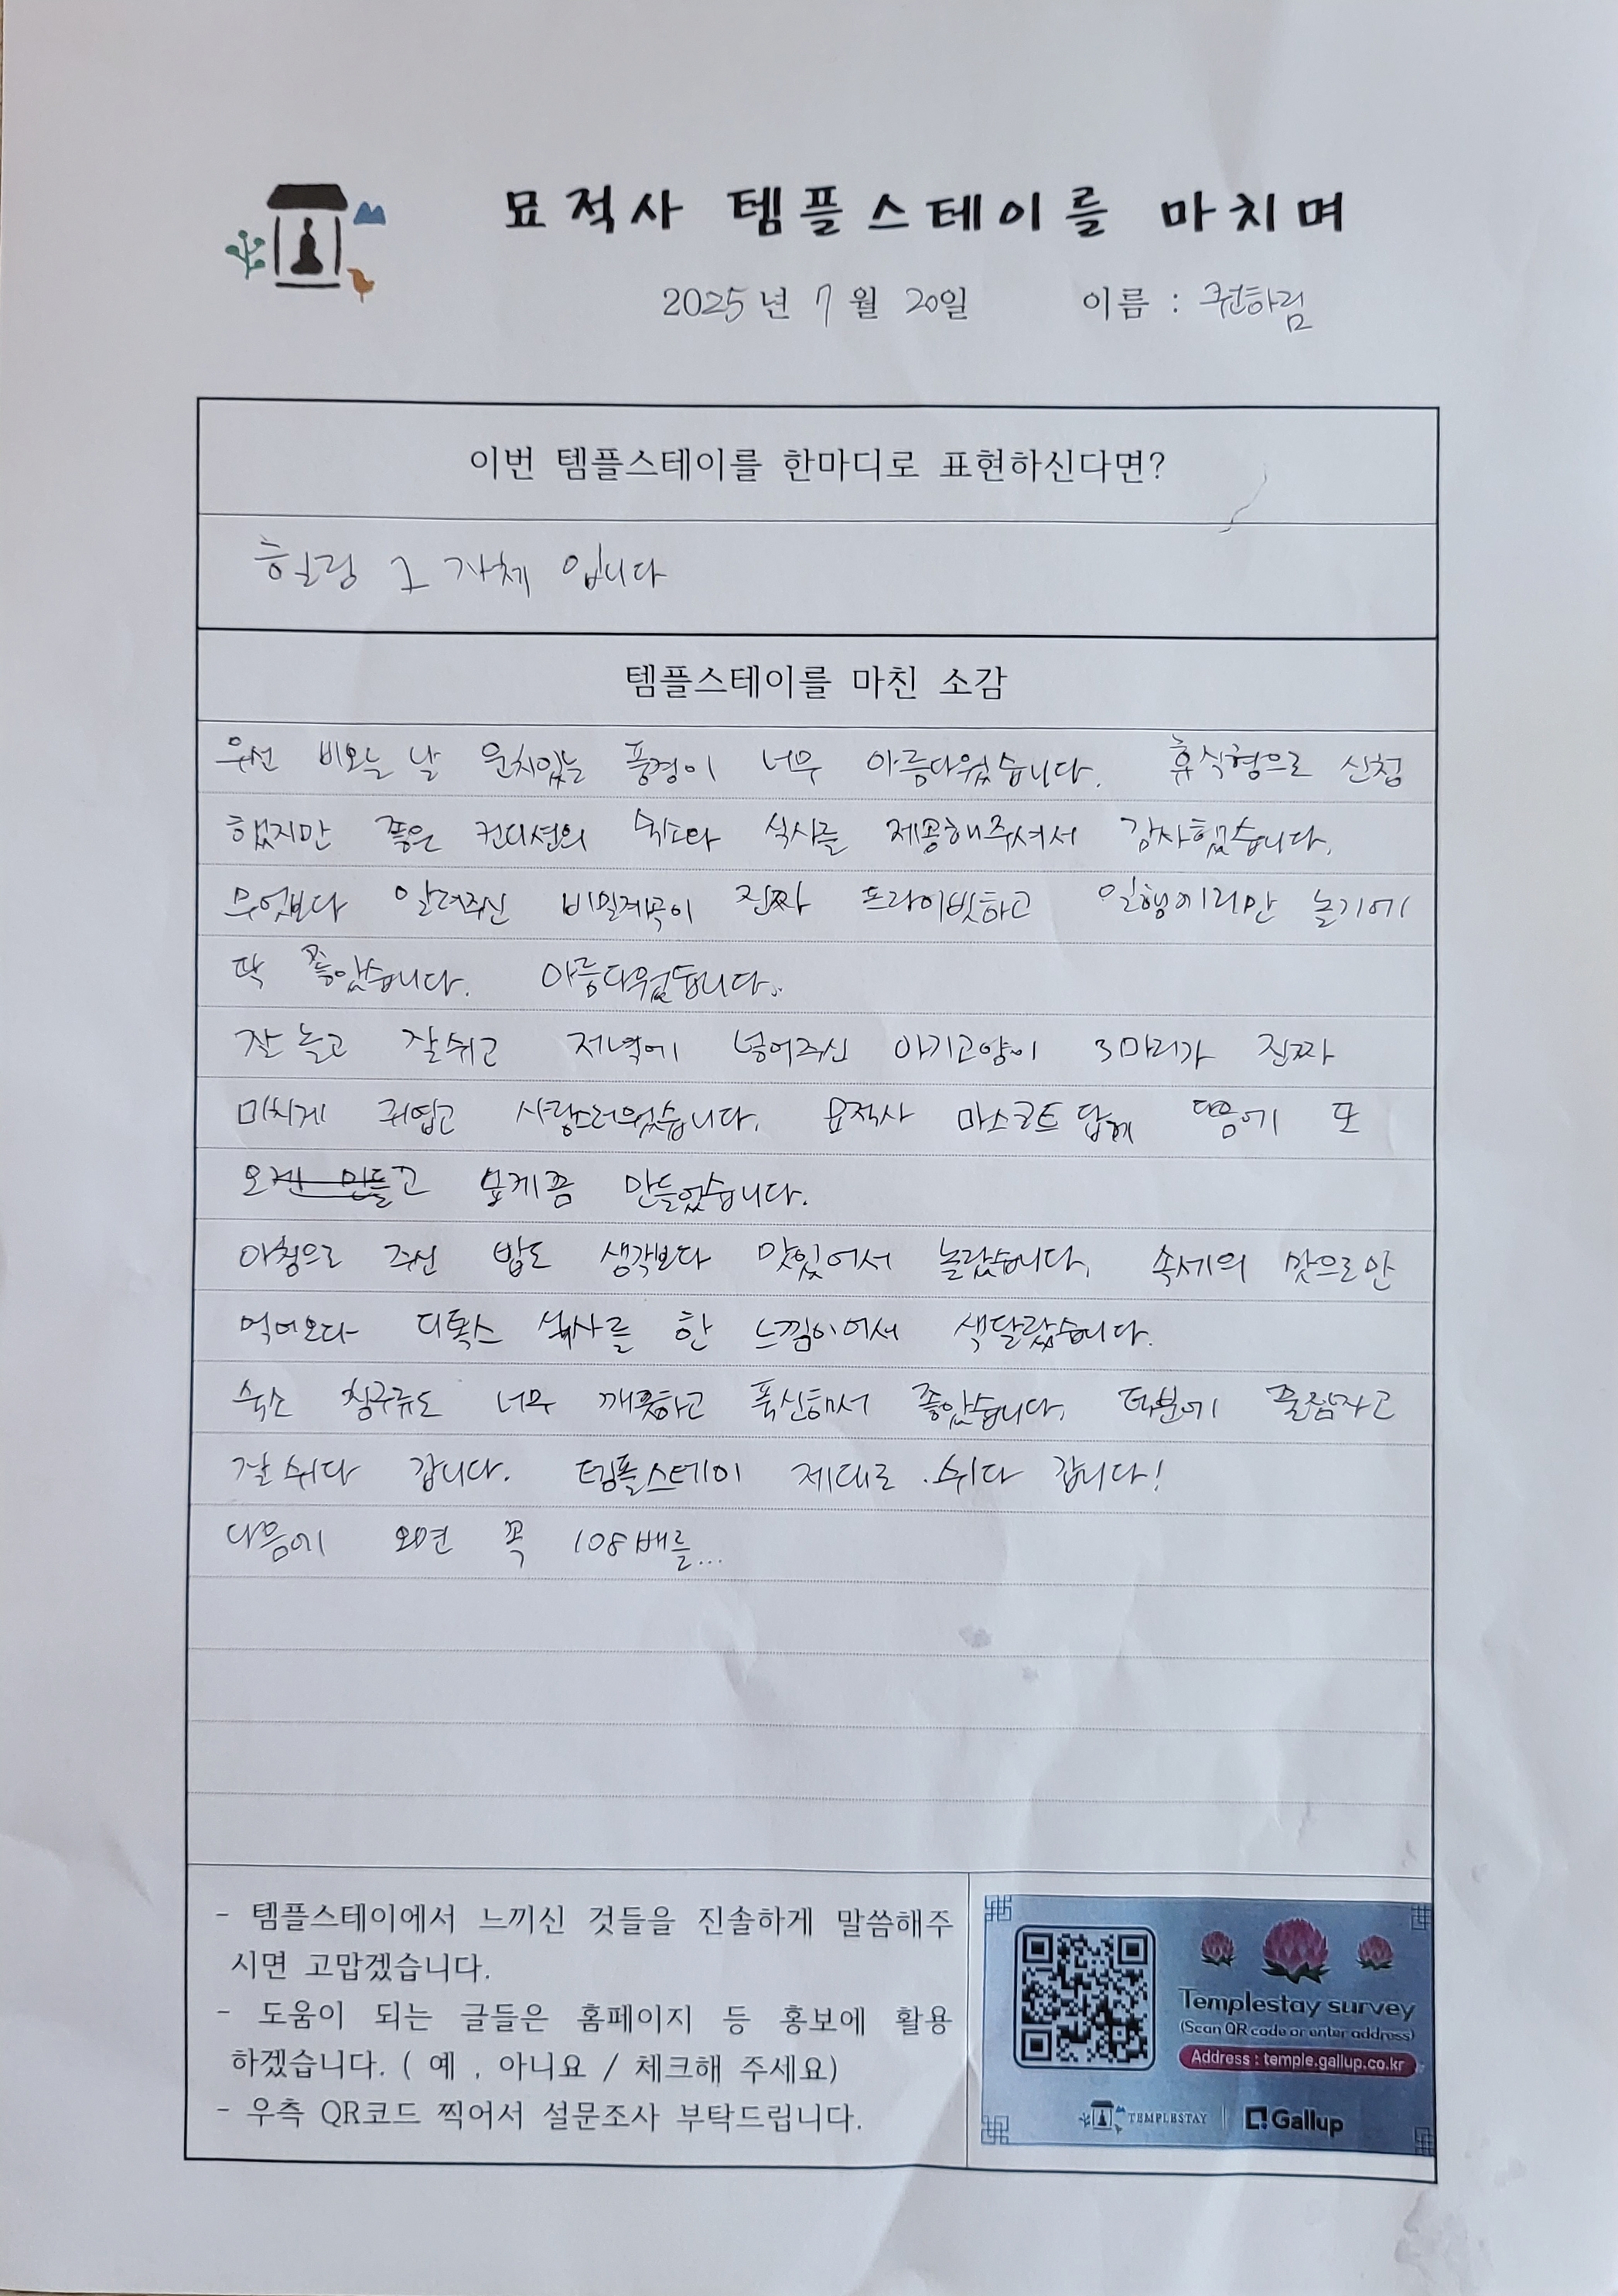 묘적사 템플스테이를 마치며
2025년 7월 20일 이름 : 권하림
이번 템플스테이를 한마디로 표현하신다면?
힐링 그 자체 입니다
템플스테이를 마친 소감
우선 비오는 날 운치있는 풍경이 너무 아름다웠습니다. 휴식형으로 신청
했지만 좋은 컨디션의 숙소와 식사를 제공해주셔서 감사했습니다.
무엇보다 알려주신 비밀계곡이 진짜 프라이빗하고 일행끼리만 놀기에
딱 좋았습니다. 아름다웠습니다.
잘 놀고 잘쉬고 저녁에 넣어주신 아기고양이 3마리가 진짜
미치게 귀엽고 사랑스러웠습니다. 묘적사 마스코트 답게 다음에 또
오고 싶게끔 만들었습니다.
아침으로 주신 밥도 생각보다 맛있어서 놀랐습니다. 속세의 맛으로만
먹어오다 디톡스 식사를 한 느낌이어서 색달랐습니다.
숙소 침구류도 너무 깨끗하고 폭신해서 좋았습니다. 덕분에 꿀잠자고
잘 쉬다 갑니다. 템플스테이 제대로 쉬다 갑니다!
다음에 오면 꼭 108배를...
- 템플스테이에서 느끼신 것들을 진솔하게 말씀해주
시면 고맙겠습니다.
- 도움이 되는 글들은 홈페이지 등 홍보에 활용
하겠습니다. ( 예 , 아니요 / 체크해 주세요)
- 우측 QR코드 찍어서 설문조사 부탁드립니다.
Templestay survey
(Scan QR code or enter address)
Address : temple.gallup.co.kr
TEMPLESTAY Gallup